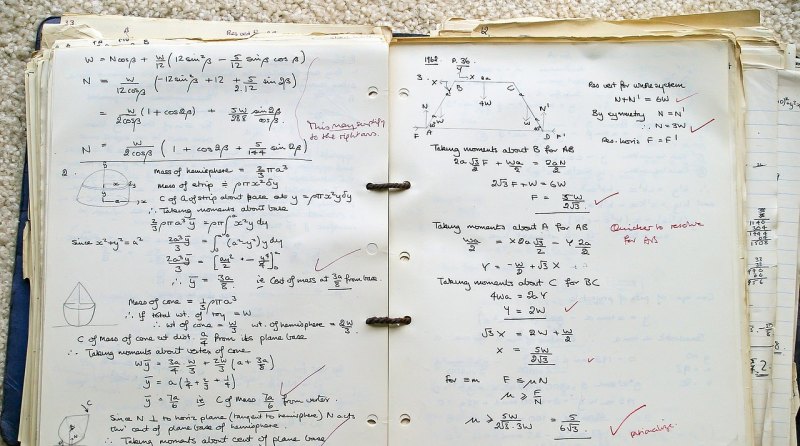 33
Res vert
W = Ncosβ + W/12 (12 sin²β - 5/12 sinβ cosβ)
N = W/12cosβ (-12 sin²β + 12 + 5/2.12 sin 2β)
= W/2cosβ (1 + cos2β) + 5W/288 sin2β/cosβ.
This may simplify to the right ans.
N = W/2cosβ (1 + cos2β + 5/144 sin 2β)
2.
Mass of hemisphere = 2/3 πa³
Mass of strip = ρπx²δy
C of G of strip about base as y = ρπx²yδy
∴ Taking moments about base
2/3 ρπa³ȳ = ρπ∫x²y dy
since x²+y² = a²
2a³ȳ/3 = ∫(a²-y²)y dy
2a³ȳ/3 = [a²y²/2 - y⁴/4]
∴ ȳ = 3a/8 ie Cent of mass at 3a/8 from base.
Mass of cone = 1/3 ρπa³
∴ If total wt. of toy = W
∴ wt of cone = W/3 wt. of hemisphere = 2W/3
C of Mass of cone at dist. a/4 from its plane base
∴ Taking moments about vertex of cone
Wȳ = 3a/4 W/3 + 2W/3 (a + 3a/8)
ȳ = a(1/4 + 2/3 + 1/4)
ȳ = 7a/6 ie C of mass 7a/6 from vertex.
Since N ⊥ to horiz plane (tangent to hemisphere) N acts
thr' cent of plane base of hemisphere.
∴ Taking moments about cent of plane base
1962 P.36
3.
X 2a
B C
4W
N N'
W W
F A D F'
Res vert for whole system
N+N' = 6W
By symmetry N = N'
∴ N = 3W
Res. horiz F = F'
Taking moments about B for AB
2a √3/2 F + Wa/2 = 2aN/2
2√3F + W = 6W
F = 5W/2√3
Taking moments about A for AB
Wa/2 = X2a√3/2 - Y 2a/2
Quicker to resolve for AB
Y = -W/2 + √3 X
Taking moments about C for BC
4Wa = 2aY
Y = 2W
√3X = 2W + W/2
X = 5W/2√3
for =m F ≤ μN
μ ≥ F/N
μ ≥ 5W/2√3.3W = 5/6√3
rationalize.